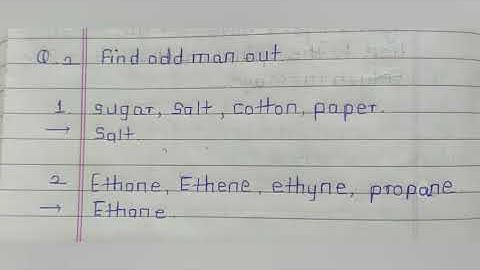 Q.2 Find odd man out.
1. sugar, salt, cotton, paper.
→ Salt.
2 Ethane, Ethene, ethyne, propane
→ Ethane.